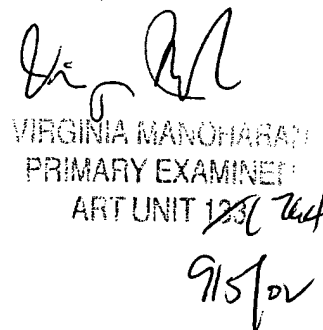 VIRGINIA MANOHARAN
PRIMARY EXAMINER
ART UNIT
9/5/02